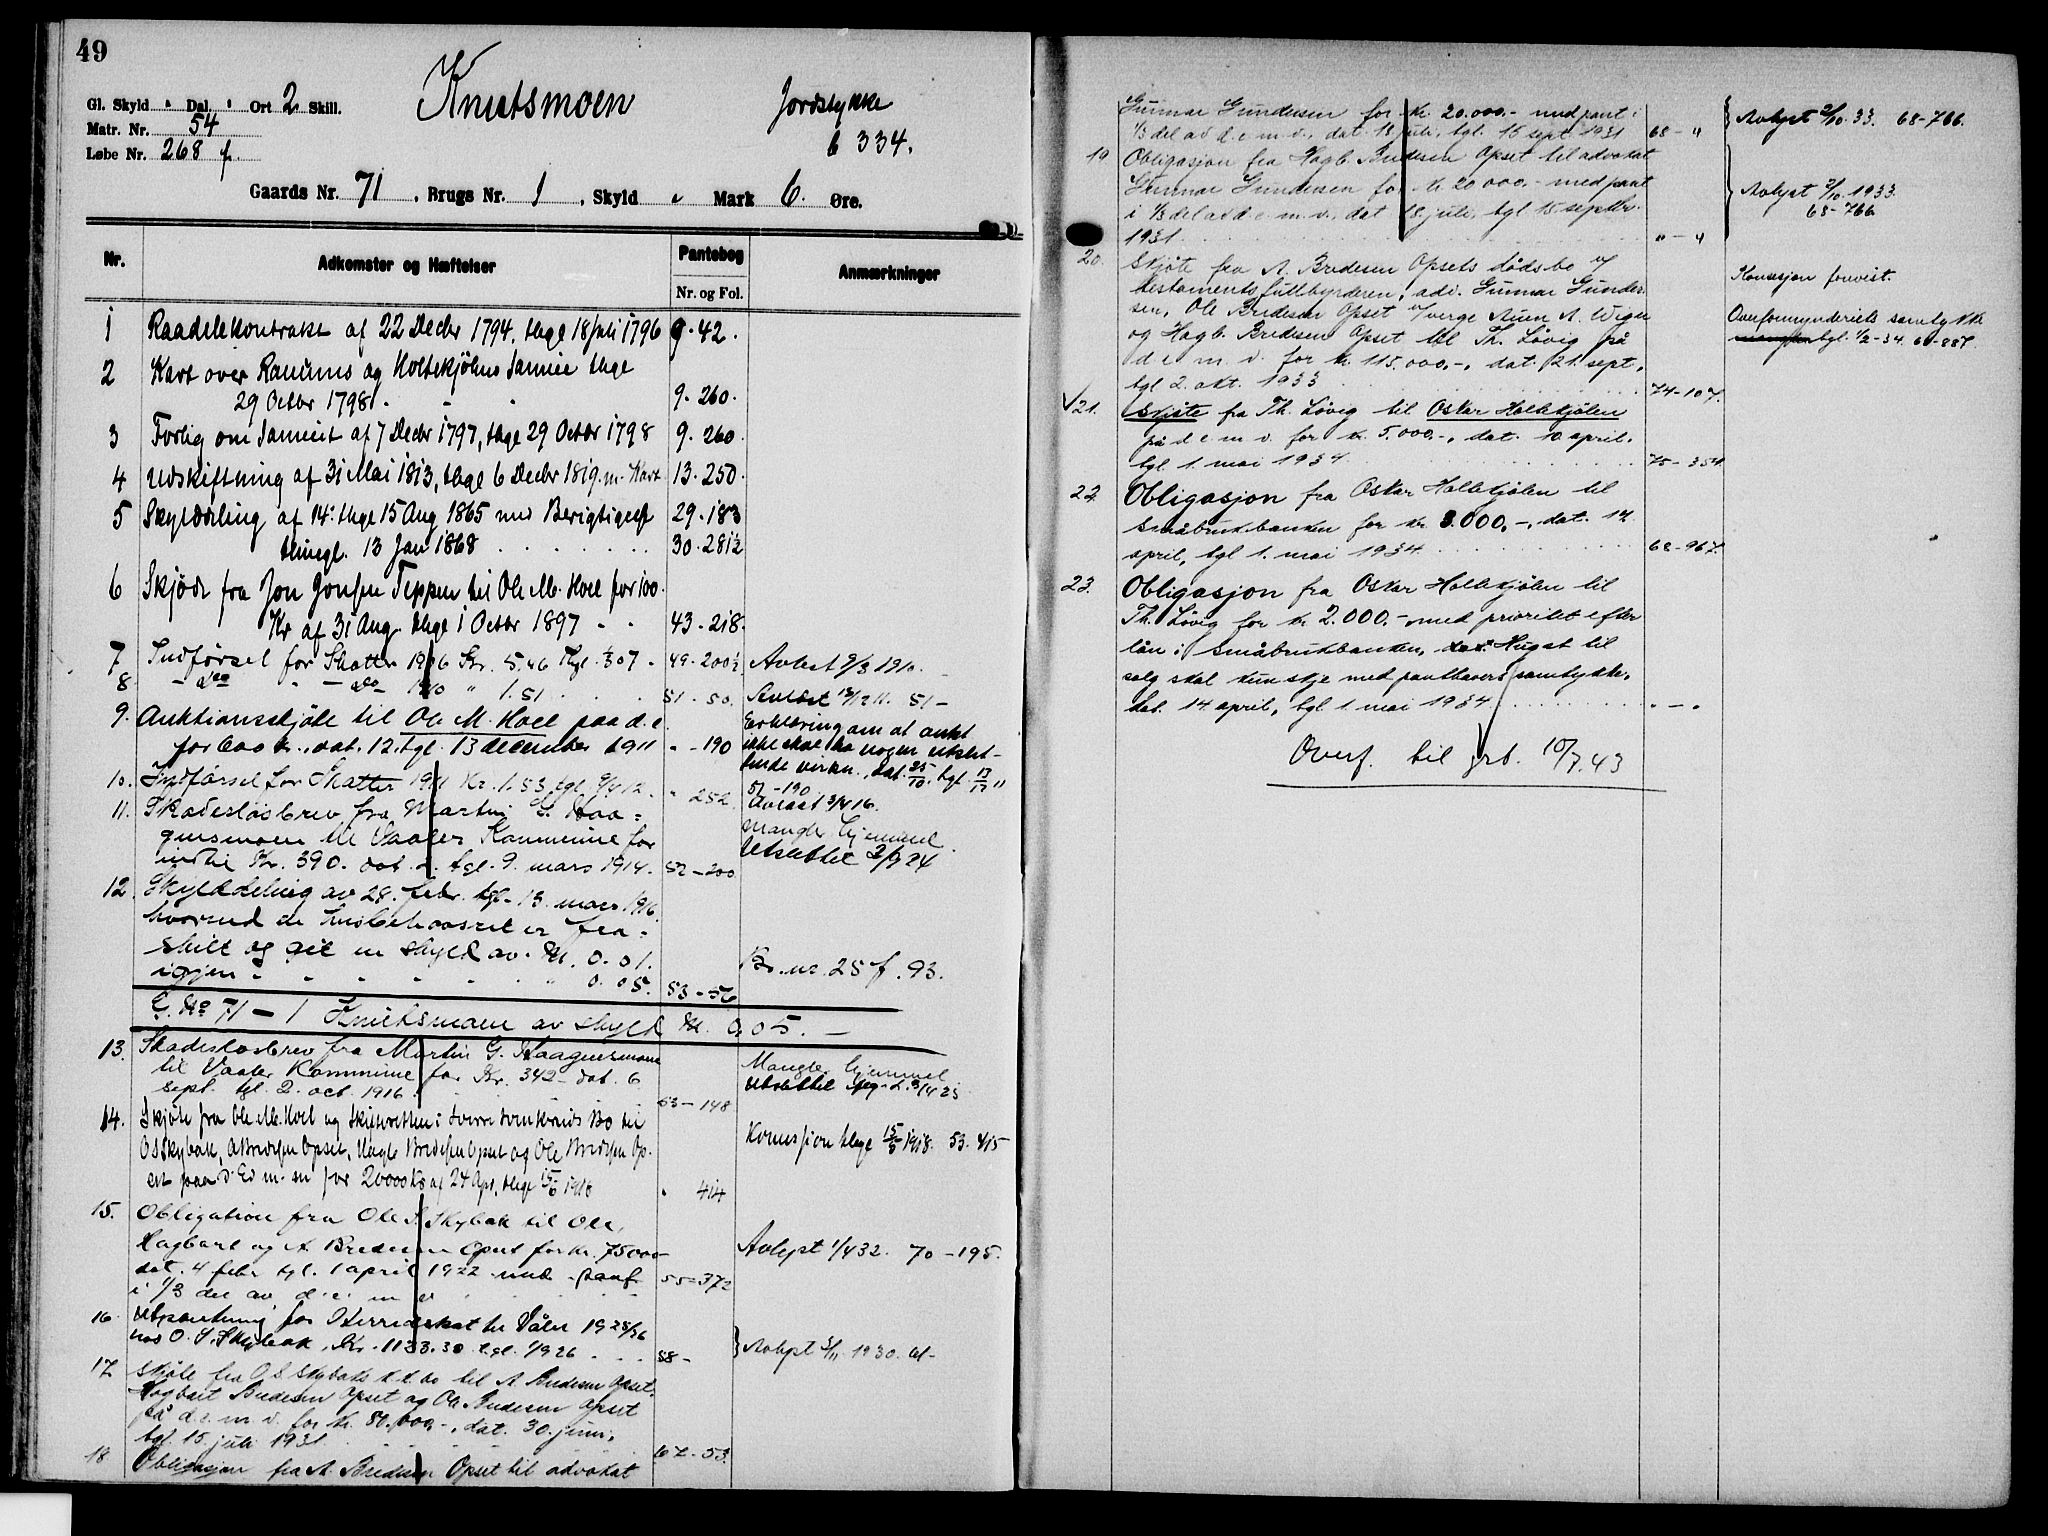 49
Gl. Skyld " Dal. " Ort 2 Skill.
Knutsmoen
Jordstykke
Matr. Nr. 54
b 334.
Løbe Nr. 268 f.
Gaards Nr. 71, Brugs Nr. 1, Skyld " Mark 6 Øre.
Nr. Adkomster og Hæftelser Pantebog Nr. og Fol. Anmærkninger
1 Raadelekontrakt af 22 Decbr 1794, thgl 18 Juli 1796 9. 42.
2 Kart over Ranums og Holtekjølens Sameie thgl
29 Octbr 1798. 9. 260.
3 Forlig om Sameiet af 7 Decbr 1797, thgl 29 Octbr 1798 9. 260.
4 Udskiftning af 31 Mai 1813, thgl 6 Decbr 1819. m. Kart 13. 250.
5 Skylddeling af 14. thgl 15 Aug 1865 med Berigtigelse 29. 183
thingl. 13 Jan 1868 30. 281½
6 Skjøde fra Jon Jonsen Teppen til Ole M. Hoel for 100
Kr af 31 Aug thgl 1 Octbr 1897 43. 218.
7 Indførsel for Skatter 1906 Kr. 5.46 Thgl. 1/3 07 49. 200½ Avlæst 9/3 1910.
8. do do 1910 " 1.51 51. 50. Avlæst 13/12 11. 51-
9. Auktionsskjøte til Ole M. Hoel paa d. e.
for 600 kr., dat. 12, tgl. 13 december 1911 " - 190
Erklæring om at aukt
ikke skal ha nogen utslet-
tende virkn., dat. 25/10, tgl. 13/12 11
51 - 190
10. Indførsel for Skatter 1911 Kr. 1.53 tgl. 9/4 12. " 252. Avlæst 3/4 16.
11. Skadesløsbrev fra Martin G. Haa=
gensmoen til Vaaler Kommune for
indtil Kr. 390. dat. og tgl. 9. mars 1914. 52 - 200
Mangler hjemmel.
Utslettet 2/9 24
12. Skylddeling av 28. febr. tgl. 13. mars 1916.
hvorved de husbehovsret er fra=
skilt og git en skyld av M. 0.01. Br. nr. 25 f. 93.
igjen " " " " " 0.05. 53 - 56
G. No 71 - 1 Knutsmoen av skyld M. 0,05. -
13. Skadesløsbrev fra Martin G. Haagensmoen
til Vaaler Kommune for Kr. 342 - dat. 6
sept. tgl. 2. oct. 1916. 53 - 148
Mangler hjemmel
14. Skjøte fra Ole M. Hoel og Skifteretten i Sverre Svenkeruds Bo til
O S Skybak, A Bredesen Opset, Hagb. Bredesen Opset og Ole Bredesen Op-
set paa d. Ed m. en for 20000 Kr af 24 Apr, thgl 15/6 1918 " 414
Konsesjon thgl 15/6 1918. 53. 415
15. Obligation fra Ole S. Skybak til Ole,
Hagbart og A Bredesen Opset for kr. 75000-
dat. 4 febr tgl. 1 april 1922 med pant
i 1/3 del av d. e. m. v. 55 - 372
Avlyst 1/4 32. 70 - 195.
16. Utpantning for Herredskat til Våler 1925/26
hos O. S. Skybak, Kr. 1133.30 tgl. 1/9 26 58 - } Avlyst 5/11 1930. 61-
17. Skjøte fra O S Skybaks k.k.bo til A Bredesen Opset,
Hagbart Bredesen Opset og Ole Bredesen Opset
på d. e. m. v. for kr. 80.000,-, dat. 30. juni,
tgl. 15. juli 1931 67 - 53.
18 Obligasjon fra A. Bredesen Opset til advokat
Gunnar Gundesen for kr. 20.000.- med pant i
1/3 del av d. e. m. v., dat. 18 juli, tgl. 15 sept. 1931 68 - 4 } Avlyst 2/10 33. 68-766.
19 Obligasjon fra Hagb. Bredesen Opset til advokat
Gunnar Gundesen for kr 20 000.- med pant
i 1/3 del av d. e. m. v., dat 18 juli, tgl 15 septbr.
1931 " - 4
} Avlyst 2/10 1933.
68-766
20. Skjøte fra A. Bredesen Opsets dødsbo v/
testamentsfullbyrderen, adv. Gunnar Gunder-
sen, Ole Bredesen Opset v/verge Auen A. Wiger
og Hagb. Bredesen Opset til Th. Løvig på
d e. m. v. for kr. 115.000.-, dat. 21. sept.,
tgl 2. okt. 1933 74-107.
Konsesjon forevist.
Overformynderiets samtykke
mangler tgl. 1/2-34. 68-887.
√21. Skjøte fra Th. Løvig til Oskar Holtekjølen
på d e m v. for kr. 5.000.-, dat. 10. april.
tgl. 1. mai 1934 75-354.
22. Obligasjon fra Oskar Holtekjølen til
småbrukbanken for kr. 3.000,-, dat. 14.
april, tgl 1. mai 1934 68-967.
23. Obligasjon fra Oskar Holtekjølen til
Th. Løvig for kr 2.000.- med prioritet efter
lån i småbrukbanken, dat. Hugst til
salg skal kun skje med panthavers samtykke.
dat. 14 april, tgl 1 mai 1934 " - "
Overf. til grb. 10/7.43